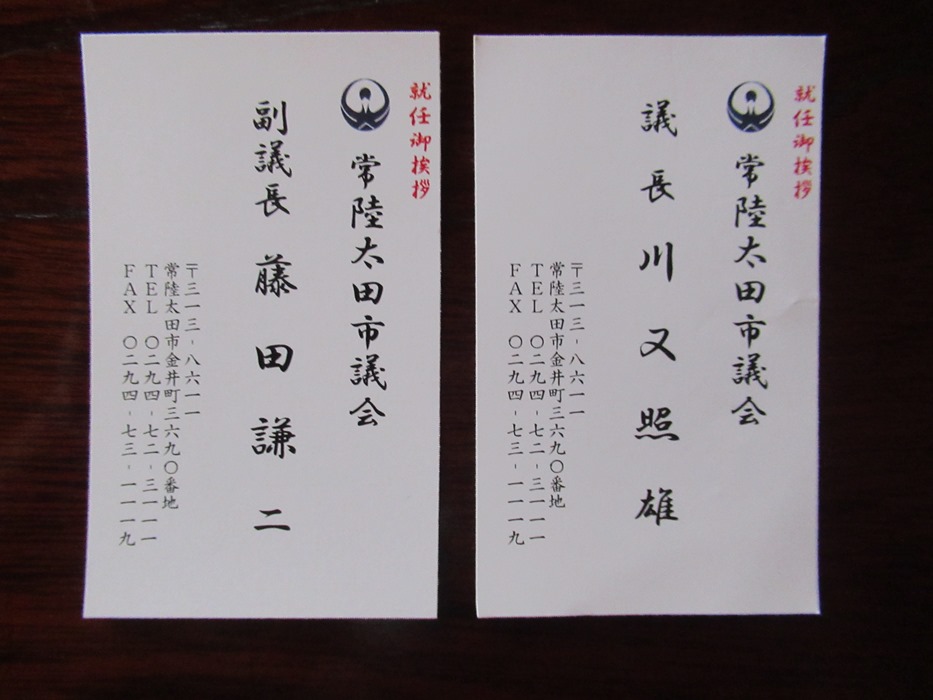 就任御挨拶
常陸太田市議会
議長 川又照雄
〒三一三-八六一一
常陸太田市金井町三六九〇番地
TEL 〇二九四-七二-三一一一
FAX 〇二九四-七三-一一一九
就任御挨拶
常陸太田市議会
副議長 藤田謙二
〒三一三-八六一一
常陸太田市金井町三六九〇番地
TEL 〇二九四-七二-三一一一
FAX 〇二九四-七三-一一一九